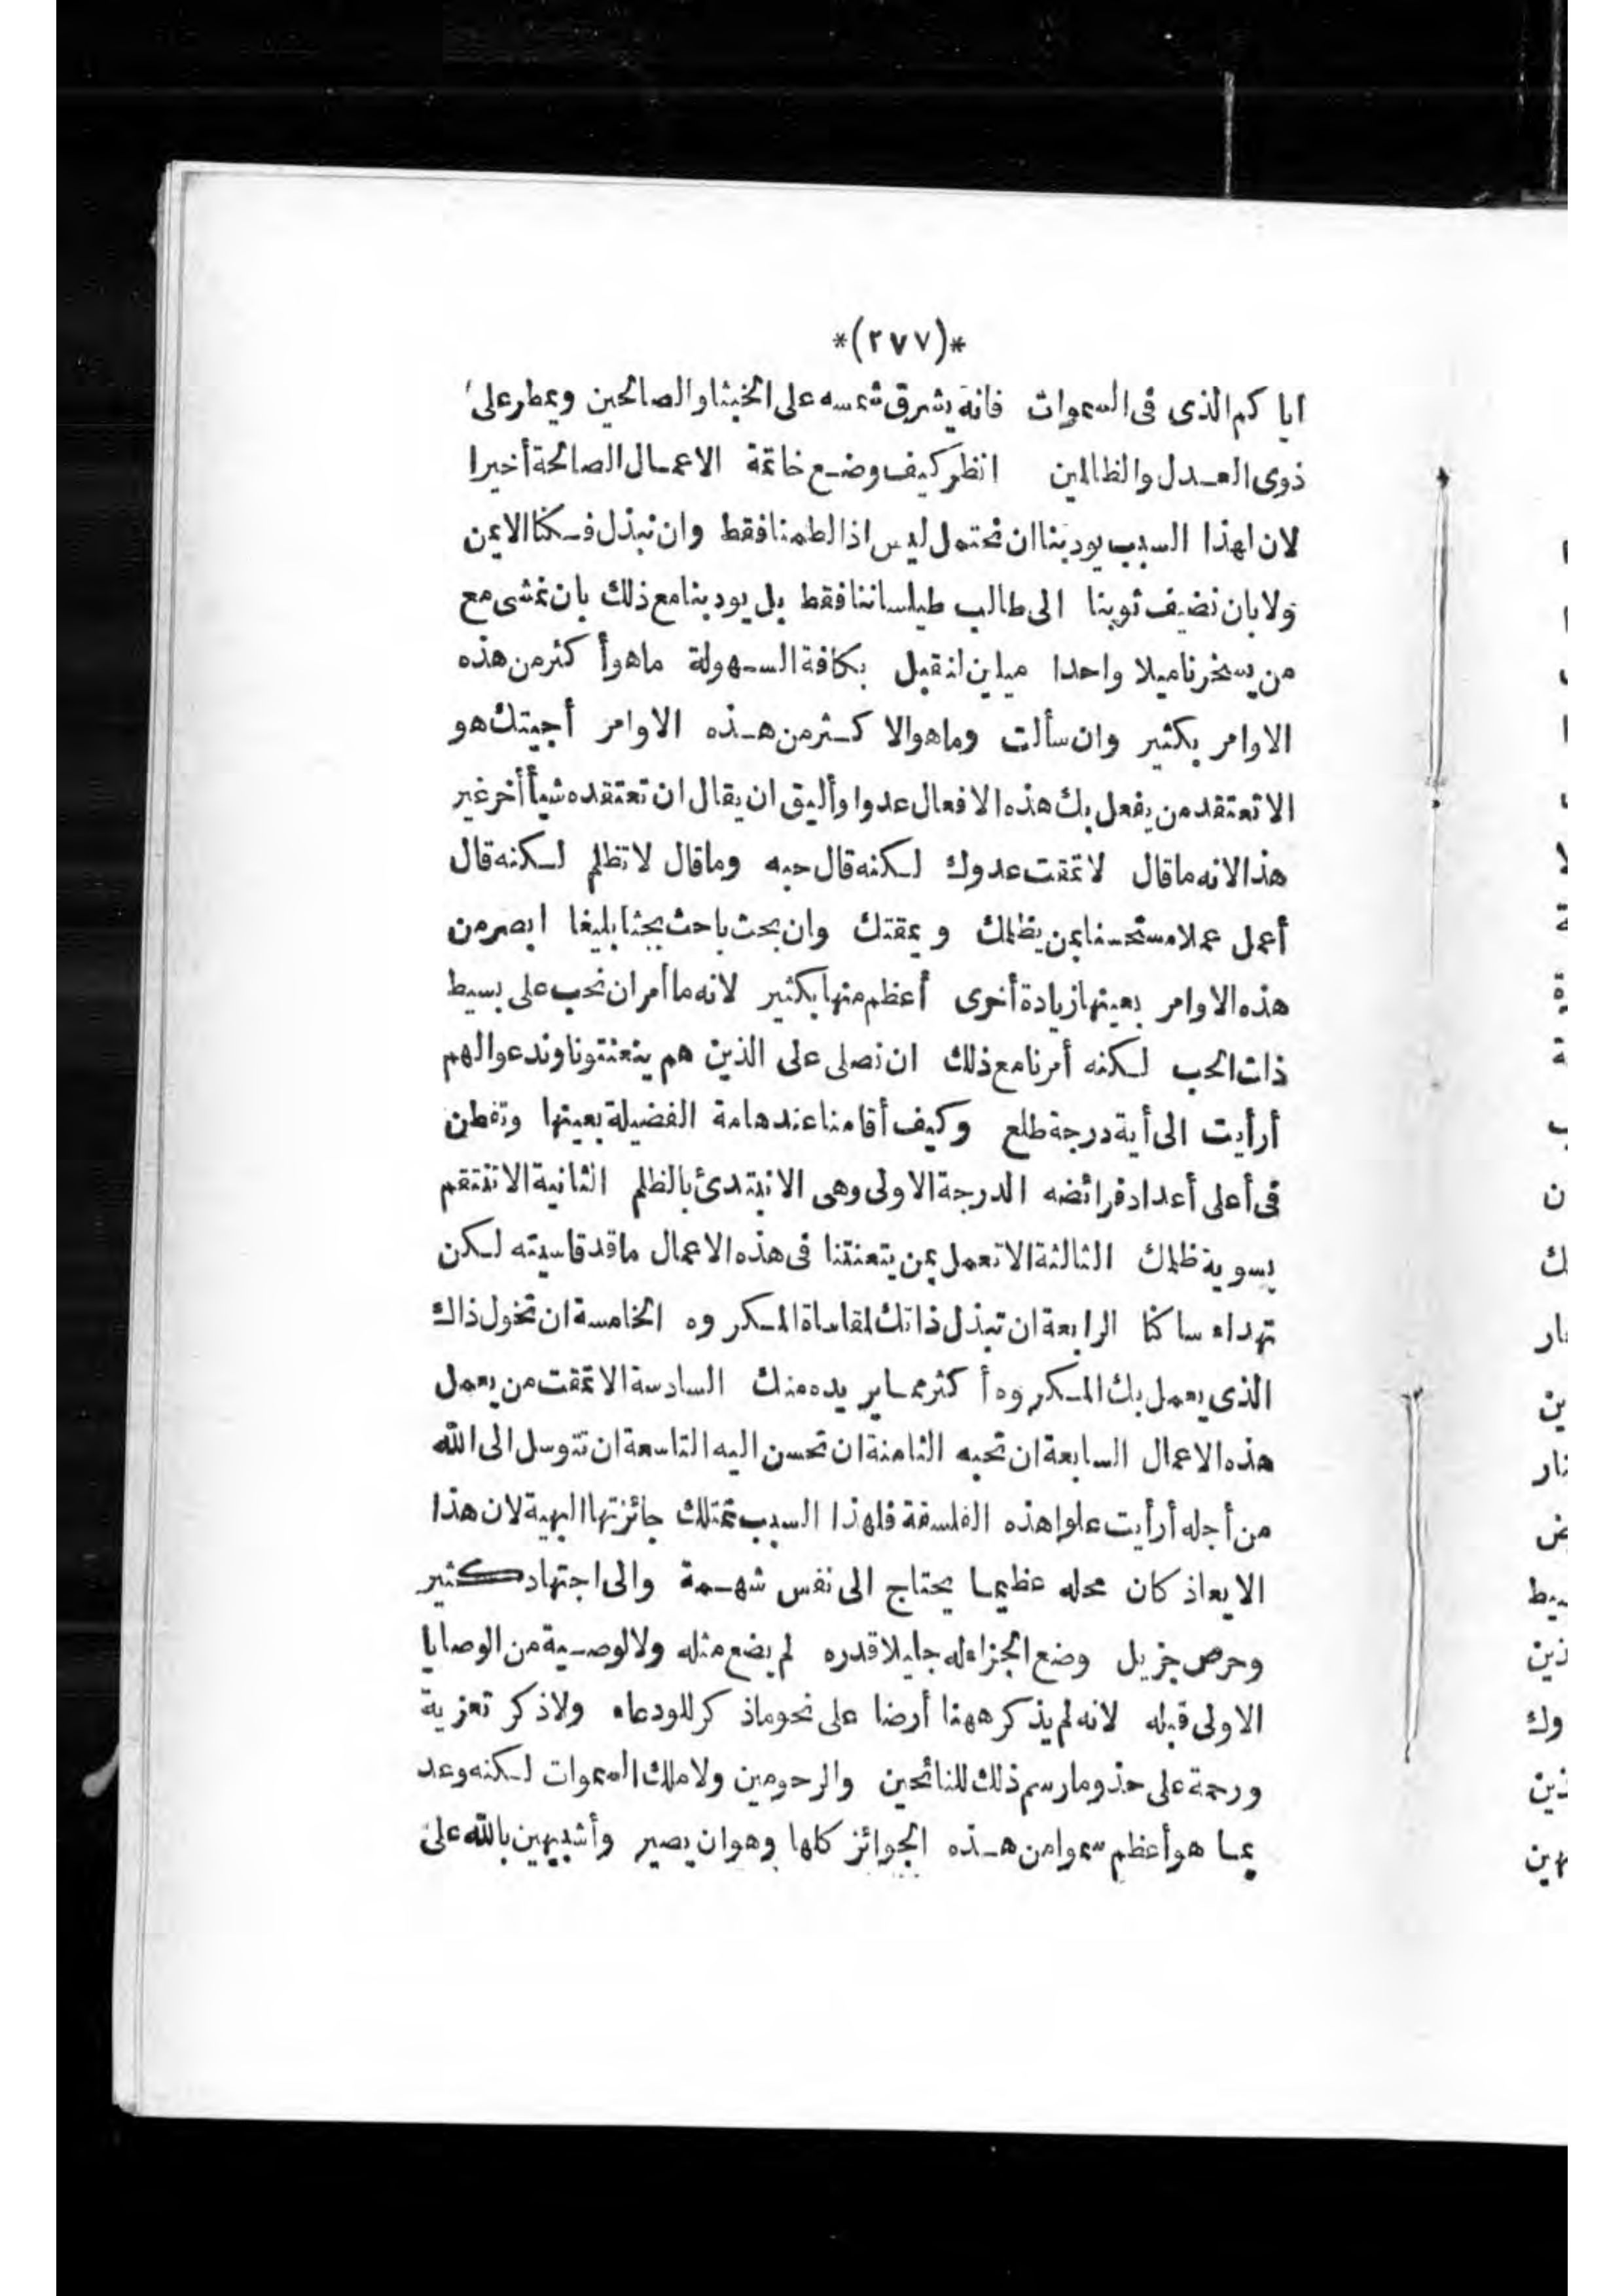 *(٢٧٧)*
اياكم الذى فى السموات فانه يشرق شمسه على الخبثا والصالحين ويمطر على
ذوى العدل والظالمين انظر كيف وضع خاتمة الاعمال الصالحة أخيرا
لان لهذا السبب يودبنا ان نحتمل ليس اذا لطمنا فقط وان نبذل فكنا الايمن
ولا بان نضيف ثوبنا الى طالب طيلساننا فقط بل يودبنا مع ذلك بان نمشى مع
من يسخرنا ميلا واحدا ميلين لنقبل بكافة السهولة ما هو أكثر من هذه
الاوامر بكثير وان سألت وما هو الاكثر من هذه الاوامر أجيتك هو
الا تعتقد من يفعل بك هذه الافعال عدوا وأليق ان يقال ان تعتقده شيأ أخر غير
هذا لانه ما قال لا تمقت عدوك لكنه قال حبه وما قال لا تظلم لكنه قال
أعمل عملا مستحسنا بمن يظلمك ويمقتك وان بحث باحث بحثا بليغا ابصر من
هذه الاوامر بعينها زيادة أخرى أعظم منها بكثير لانه ما أمر ان نحب على بسيط
ذات الحب لكنه أمرنا مع ذلك ان نصلى على الذين هم يتعنتونا وندعو الهم
أرأيت الى أية درجة طلع وكيف أقامنا عند هامة الفضيلة بعينها وتفطن
فى أعلى أعداد فرائضه الدرجة الاولى وهى الا نبتدئ بالظلم الثانية الا تنتقم
بسوية ظلمك الثالثة الا تعمل بمن يتعنتنا فى هذه الاعمال ما قد قاسيته لكن
تهداء ساكنا الرابعة ان تبذل ذاتك لمقاساة المكروه الخامسة ان تخول ذاك
الذى يعمل بك المكروه أكثر مما يريده منك السادسة الا تمقت من يعمل
هذه الاعمال السابعة ان تحبه الثامنة ان تحسن اليه التاسعة ان تتوسل الى الله
من أجله أرأيت علوا هذه الفلسفة فلهذا السبب تمتلك جائزتها البهية لان هذا
الايعاذ كان محله عظيما يحتاج الى نفس شهمة والى اجتهاد كثير
وحرص جزيل وضع الجزاء له جليلا قدره لم يضع مثله ولا لوصية من الوصايا
الاولى قبله لانه لم يذكر ههنا أرضا على نحو ما ذكر للودعاء ولا ذكر تعزية
ورحمة على حذو ما رسم ذلك للنائحين والرحومين ولا ملك السموات لكنه وعد
بما هو أعظم سموا من هذه الجوائز كلها وهو ان يصيروا أشبيهين بالله على